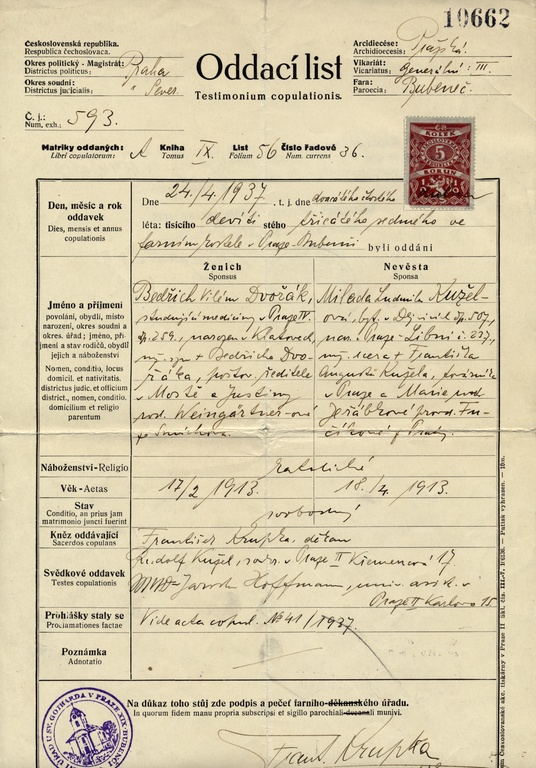 10662
Československá republika.
Respublica čechoslovaca.
Okres politický - Magistrát:
Districtus politicus:
Praha
Okres soudní:
Districtus judicialis:
" Sever.
Č. j.:
Num. exh.:
593.
Oddací list
Testimonium copulationis.
Arcidiecése:
Archidioecesis:
Pražská.
Vikariát:
Vicariatus:
Generální: III.
Fara:
Paroecia:
Bubeneč.
Matriky oddaných: A Kniha IX. List 56 Číslo řadové 36.
Libri copulatorum: Tomus Folium Num. currens
5
KORUN
Den, měsíc a rok
oddavek
Dies, mensis et annus
copulationis
Dne 24./4. 1937. t. j. dne dvacátého čtvrtého
léta: tisícího devíti stého třicátého sedmého ve
farním kostele v Praze-Bubenči byli oddáni
Jméno a příjmení
povolání, obydlí, místo
narození, okres soudní a
okres. úřad; jméno, příj-
mení a stav rodičů, obydlí
jejich a náboženství
Nomen, conditio, locus
domicil. et nativitatis,
districtus judic. et officium
district., nomen, conditio
domicilium et religio
parentum
Ženich
Sponsus
Bedřich Vilém Dvořák,
studující mediciny v Praze IV.
čp. 259., narozen v Klatovech,
syn + Bedřicha Dvo-
řáka, pošt. ředitele
v Mostě a Justiny
roz. Weingärtner-ové
Smíchova.
Nevěsta
Sponsa
Milada Ludmila Kužel-
ová, byt. v čp. 507,
nar. v Praze-Libni č. 237,
dcera + Františka
Augusta Kužela,
v Praze a Marie rod.
Jeřábkové
z Prahy.
Náboženství - Religio
katolické
Věk - Aetas
17/2 1913.
18./4. 1913.
Stav
Conditio, an prius jam
matrimonio juncti fuerint
svobodný
Kněz oddávající
Sacerdos copulans
František Krupka, děkan
Svědkové oddavek
Testes copulationis
Rudolf Kužel, v Praze II Křemencová 17.
MUDr Jarosl. Hoffmann, univ. asist. v
Praze II Karlovo 15.
Prohlášky staly se
Proclamationes factae
Vide acta copul. № 41/1937.
Poznámka
Adnotatio
Na důkaz toho stůj zde podpis a pečeť farního-děkanského úřadu.
In quorum fidem manu propria subscripsi et sigillo parochiali-decanali munivi.
Frant. Krupka
ÚŘAD U SV. GOTHARDA V PRAZE XIX-BUBENČI